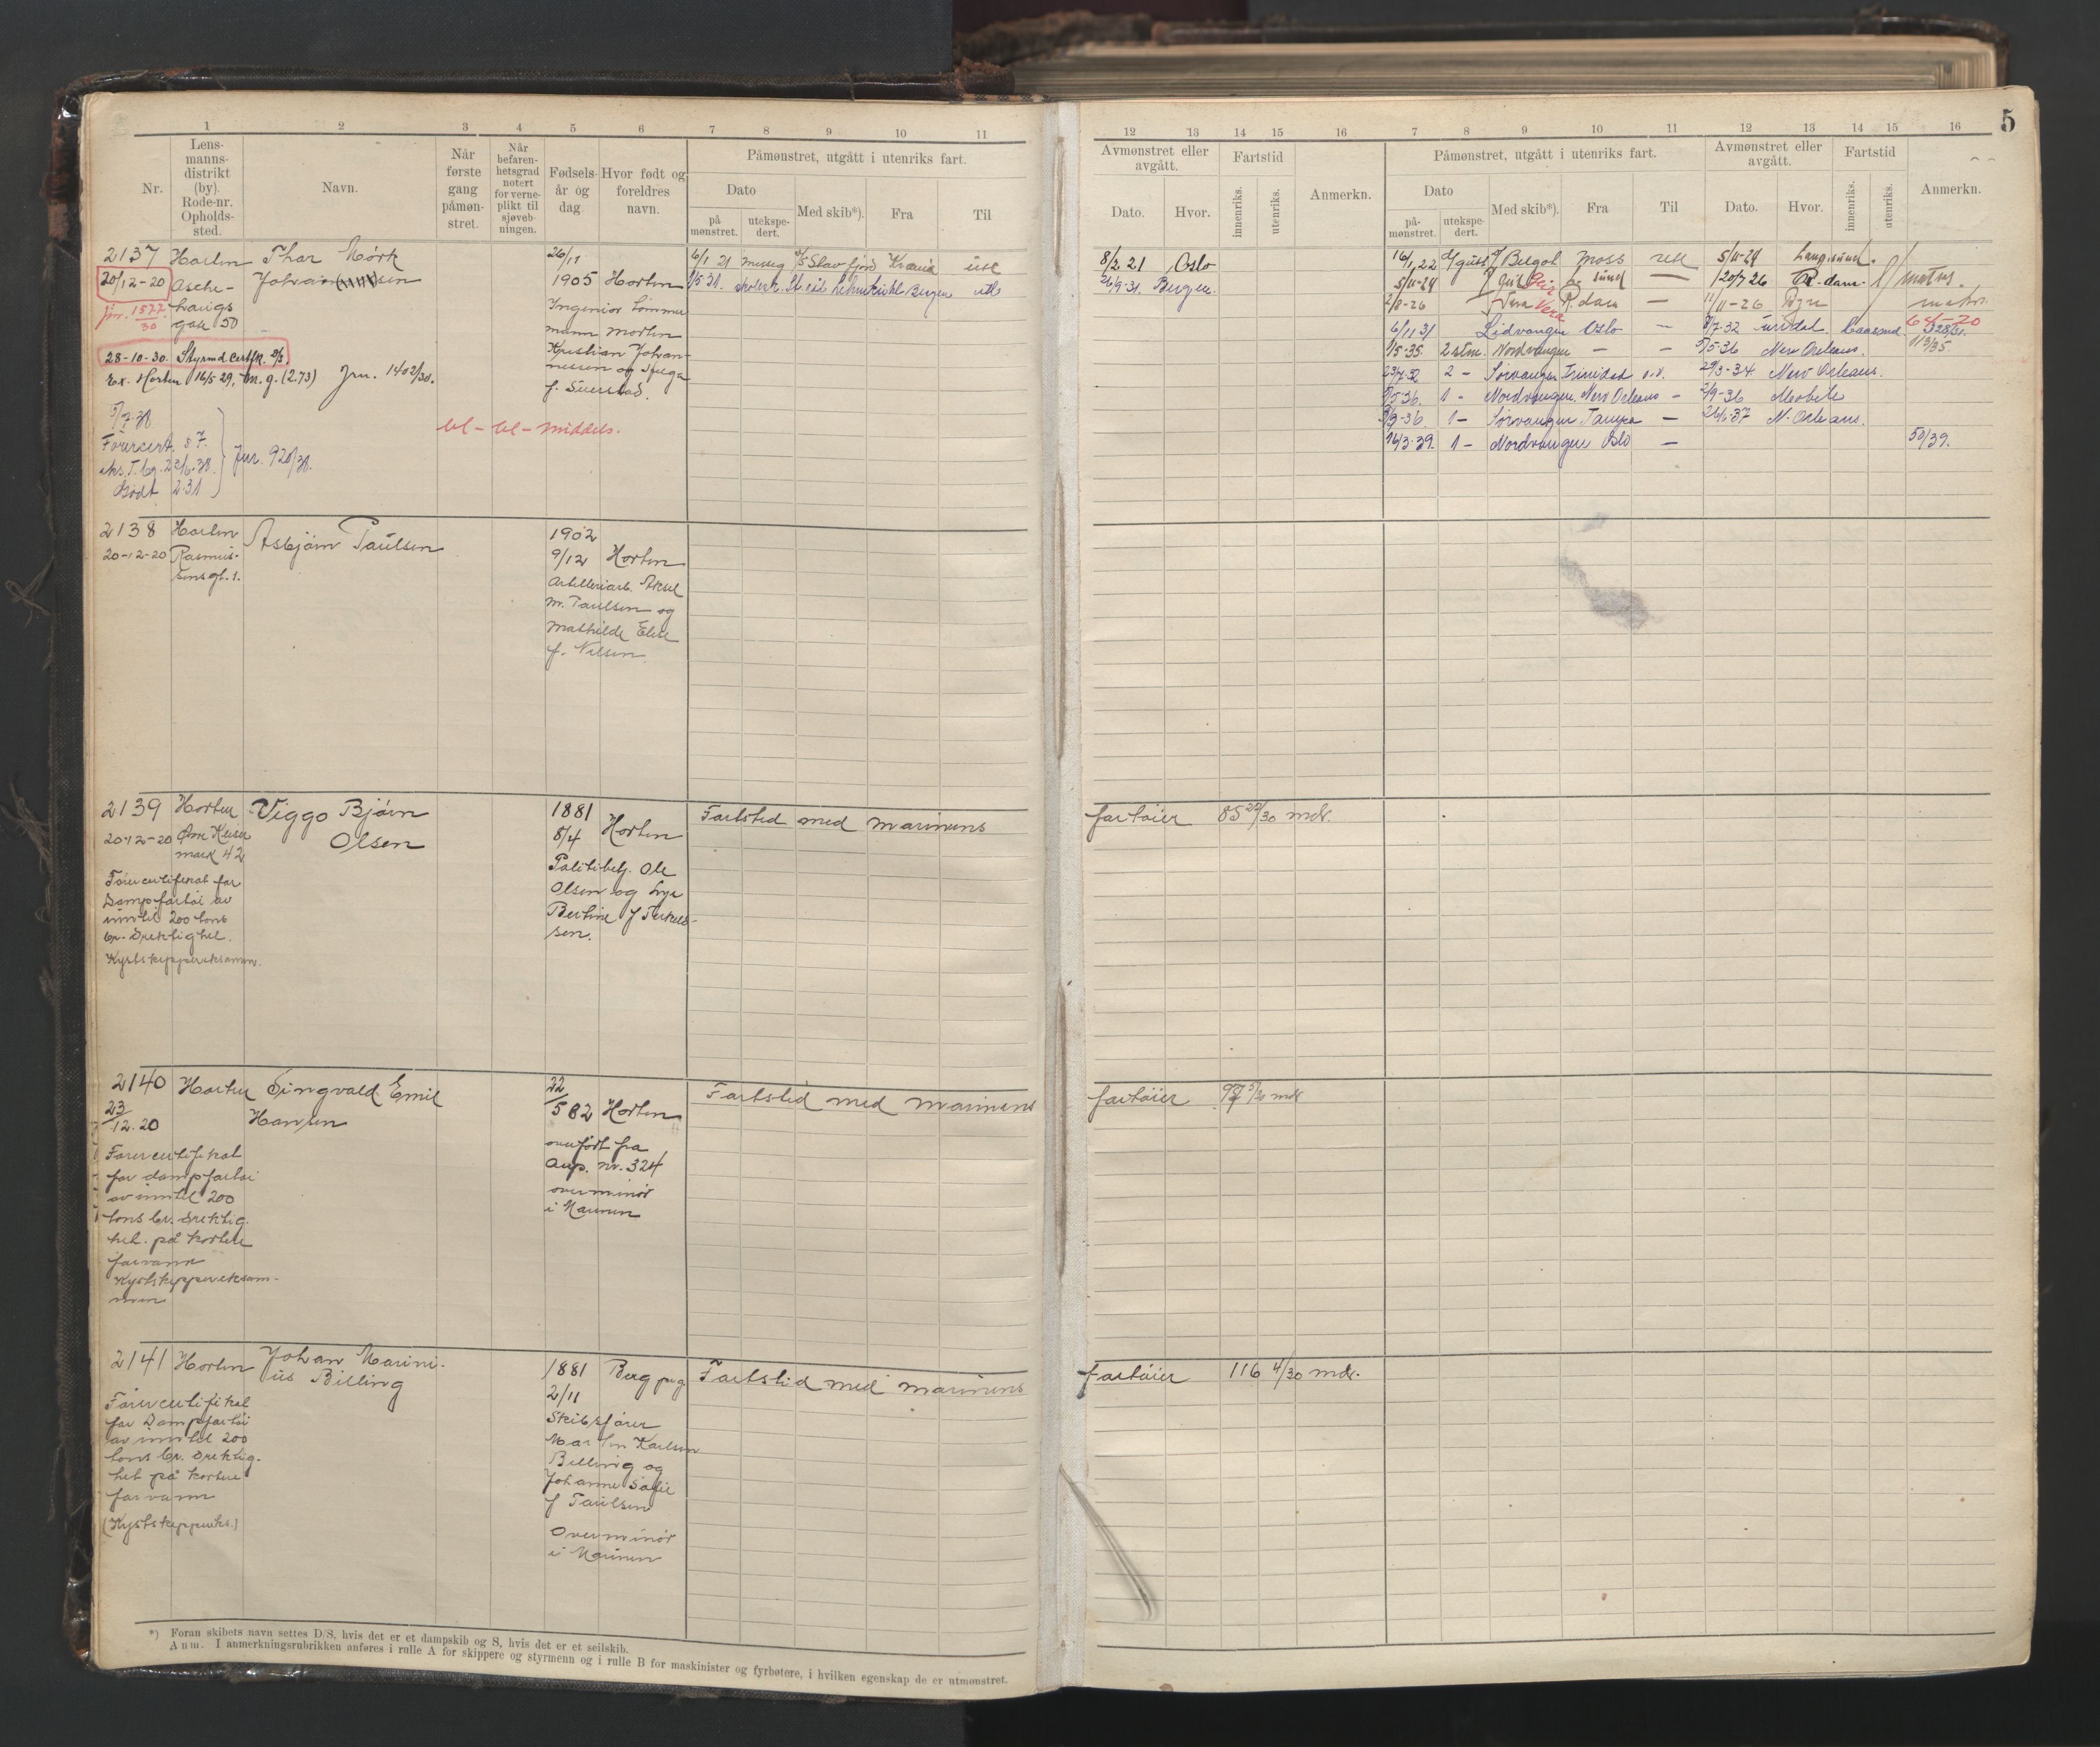 5
1 2 3 4 5 6 7 8 9 10 11
Nr.
Lens-
manns-
distrikt
(by).
Rode-nr.
Opholds-
sted.
Navn.
Når
første
gang
påmøn-
stret.
Når
befaren-
hetsgrad
notert
for verne-
plikt til
sjøveb-
ningen.
Fødsels-
år og
dag.
Hvor født og
foreldres
navn.
Påmønstret, utgått i utenriks fart.
Dato
på
mønstret.
utekspe-
dert.
Med skib*).
Fra
Til
12 13 14 15 16 7 8 9 10 11 12 13 14 15 16
Avmønstret eller
avgått.
Dato.
Hvor.
Fartstid
innenriks.
utenriks.
Anmerkn.
Påmønstret, utgått i utenriks fart.
Dato
på
mønstret.
utekspe-
dert.
Med skib*).
Fra
Til
Avmønstret eller
avgått.
Dato.
Hvor.
Fartstid
innenriks.
utenriks.
Anmerkn.
2137 Horten Thor Mørk
20/12-20
Johannesen
jnr. 1577/30
gate 50
28-10-30. Styrmd. certfk.
Ex. Horten 16/5 29, m.g. (2.73) Jnr. 1402/30.
5/7-38
Førercert. s 7.
Godt 2.31
Jnr. 920/38.
bl - bl - middels.
26/11
1905 Horten
Ingeniør
mann Morten
Kristian Johan-
nessen og
6/1 21 Stavfjord Krania utl
1/5 31. Bergen utl
8/2 21 Oslo
26/9-31. Bergen.
16/1 22 Moss utl 5/11-24
5/11-24 sund — 20/7 26 R.dam
Vera R.dam — 11/11-26
6/11 31 Lidvangen Oslo — 8/7-32
64-20
1/5-35 2 stm. Nordvangen — — 5/5-36 New Orleans.
23/7-32 2 - Sørvangen Trinidad 29/3-34 New Orleans.
5/5-36. 1 - Nordvangen New Orleans - 2/9-36 Mobile
3/9-36. 1 - Sørvangen Tampa — 26/6-37 N. Orleans.
16/3-39. 1 - Nordvangen Oslo — 50/39.
2138 Horten Asbjørn Paulsen
20-12-20 Rasmus-
sensgt. 1.
1902
9/12 Horten
Artilleriarb. Aksel
M. Paulsen og
Mathilde Elise
f. Nilsen
2139 Horten Viggo Bjørn
Olsen
20-12-20 Øvre Keiser
mark 42
Førercertifikat for
Dampfartøi av
inntil 200 tons
br. drektighet.
Kystskippereksamen.
1881
8/4 Horten
Politibetj. Ole
Olsen og
Bertine f Terkels-
sen.
Fartstid med marinens fartøier 85 27/30 mdr.
2140 Horten Singvald Emil
Hansen
23/12.20
Førercertifikat
for dampfartøi
av inntil 200
tons br. drektig-
het. på kortere
farvann
Kystskippereksam-
men
22/5 82 Horten
overført fra
Anp. nr. 324
overminør
i Marinen
Fartstid med marinens fartøier 97 mdr
2141 Horten Johan Marini-
us Billing
Førercertifikat
for Dampfartøi
av inntil 200
tons br. drektig-
het på kortere
farvann
(Kystskippereks.)
1881 Berg
2/11
Skibsfører
Martin Karlsen
Billing og
Johanne Sofie
f Paulsen
Overminør
i Marinen
Fartstid med marinens fartøier 116 4/30 mdr.
*) Foran skibets navn settes D/S, hvis det er et dampskib og S, hvis det er et seilskib.
Anm. I anmerkningsrubrikken anføres i rulle A for skippere og styrmenn og i rulle B for maskinister og fyrbøtere, i hvilken egenskap de er utmønstret.